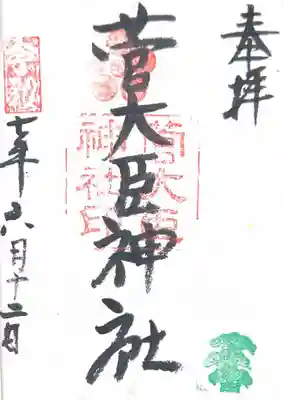 奉拝
菅大臣神社
菅大臣
神社印
七年六月十二日